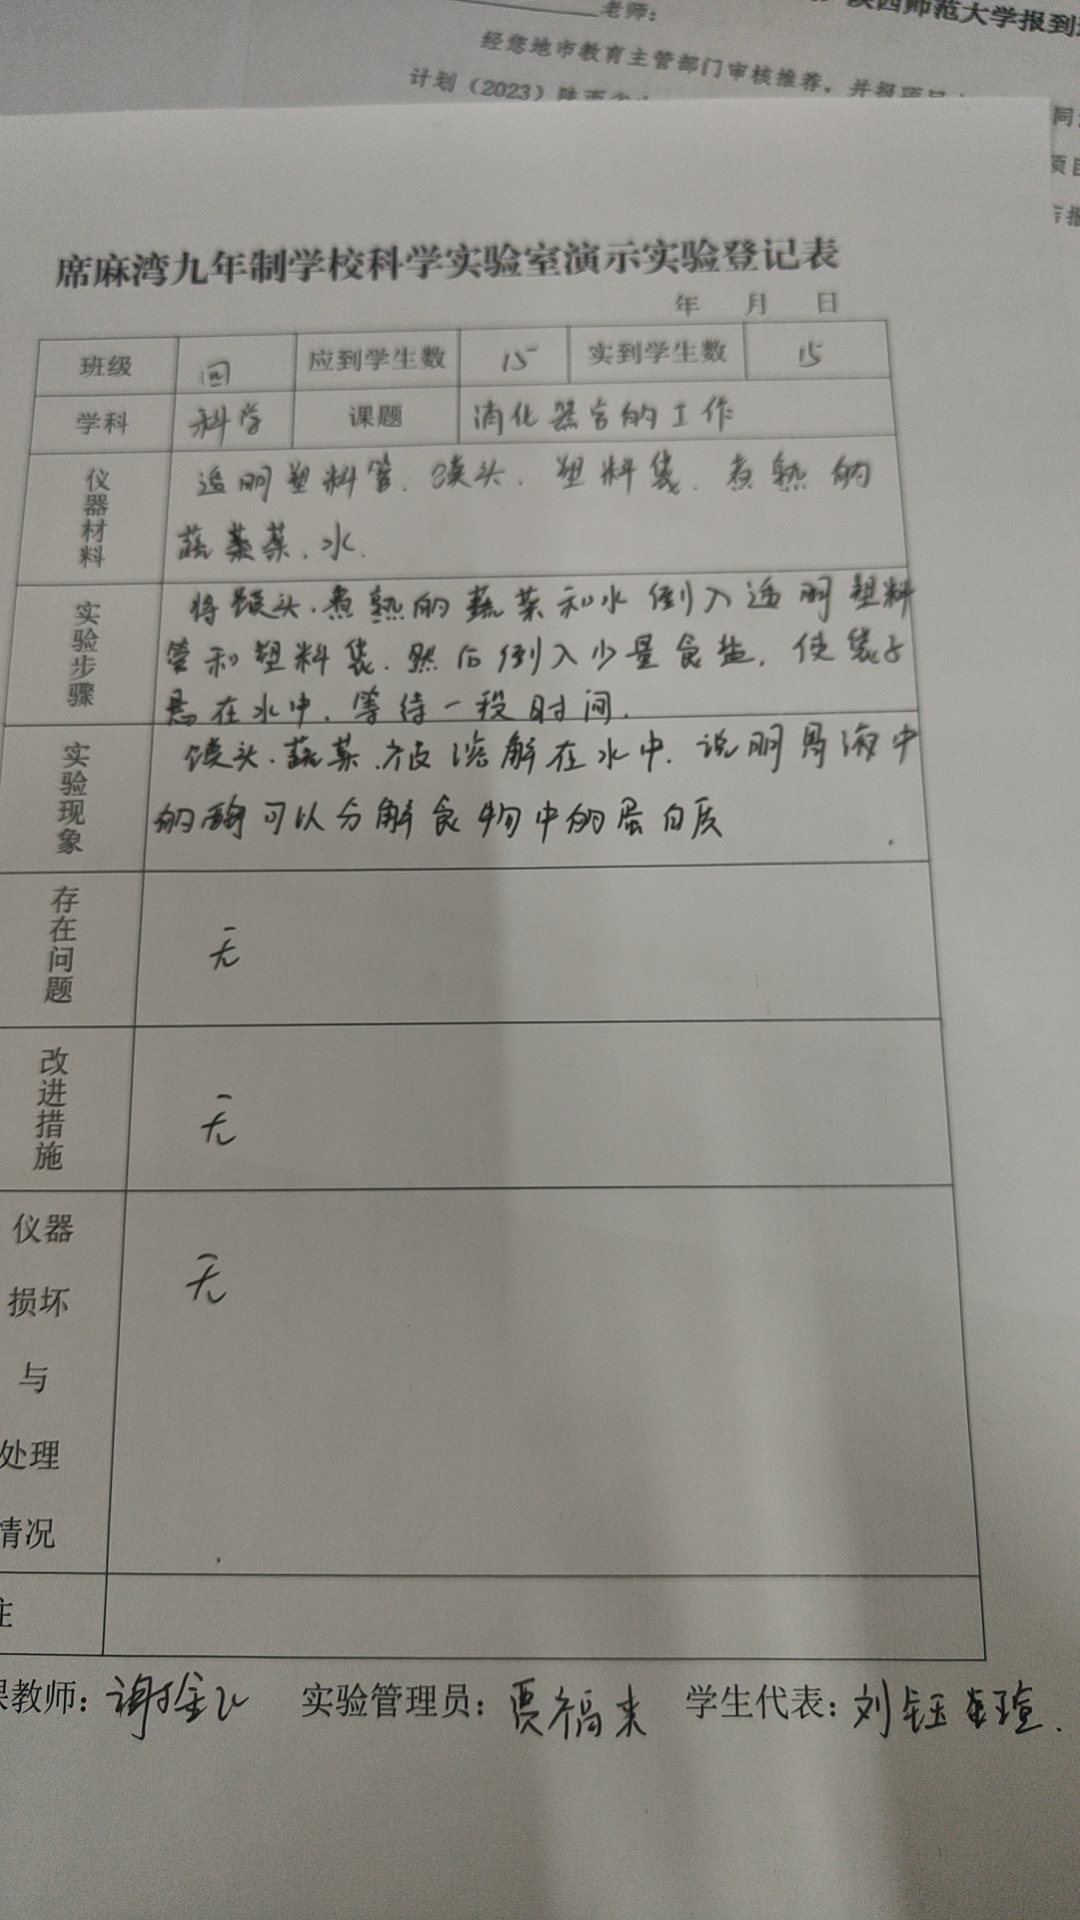 老师：
陕西师范大学报到
经您地市教育主管部门审核推荐，并报项目
计划（2023）陕西省
同
项目
席麻湾九年制学校科学实验室演示实验登记表
年 月 日
班级 四 应到学生数 15 实到学生数 15
学科 科学 课题 消化器官的工作
仪器材料 透明塑料管、馍头、塑料袋、煮熟的
蔬菜、水.
实验步骤 将馒头、煮熟的蔬菜和水倒入透明塑料
管和塑料袋、然后倒入少量食盐，使袋子
悬在水中，等待一段时间.
实验现象 馍头、蔬菜、被溶解在水中，说明胃液中
的酶可以分解食物中的蛋白质
存在问题 无
改进措施 无
仪器
损坏
与
处理
情况 无
注
课教师： 实验管理员：贾福来 学生代表：刘钰瑄.